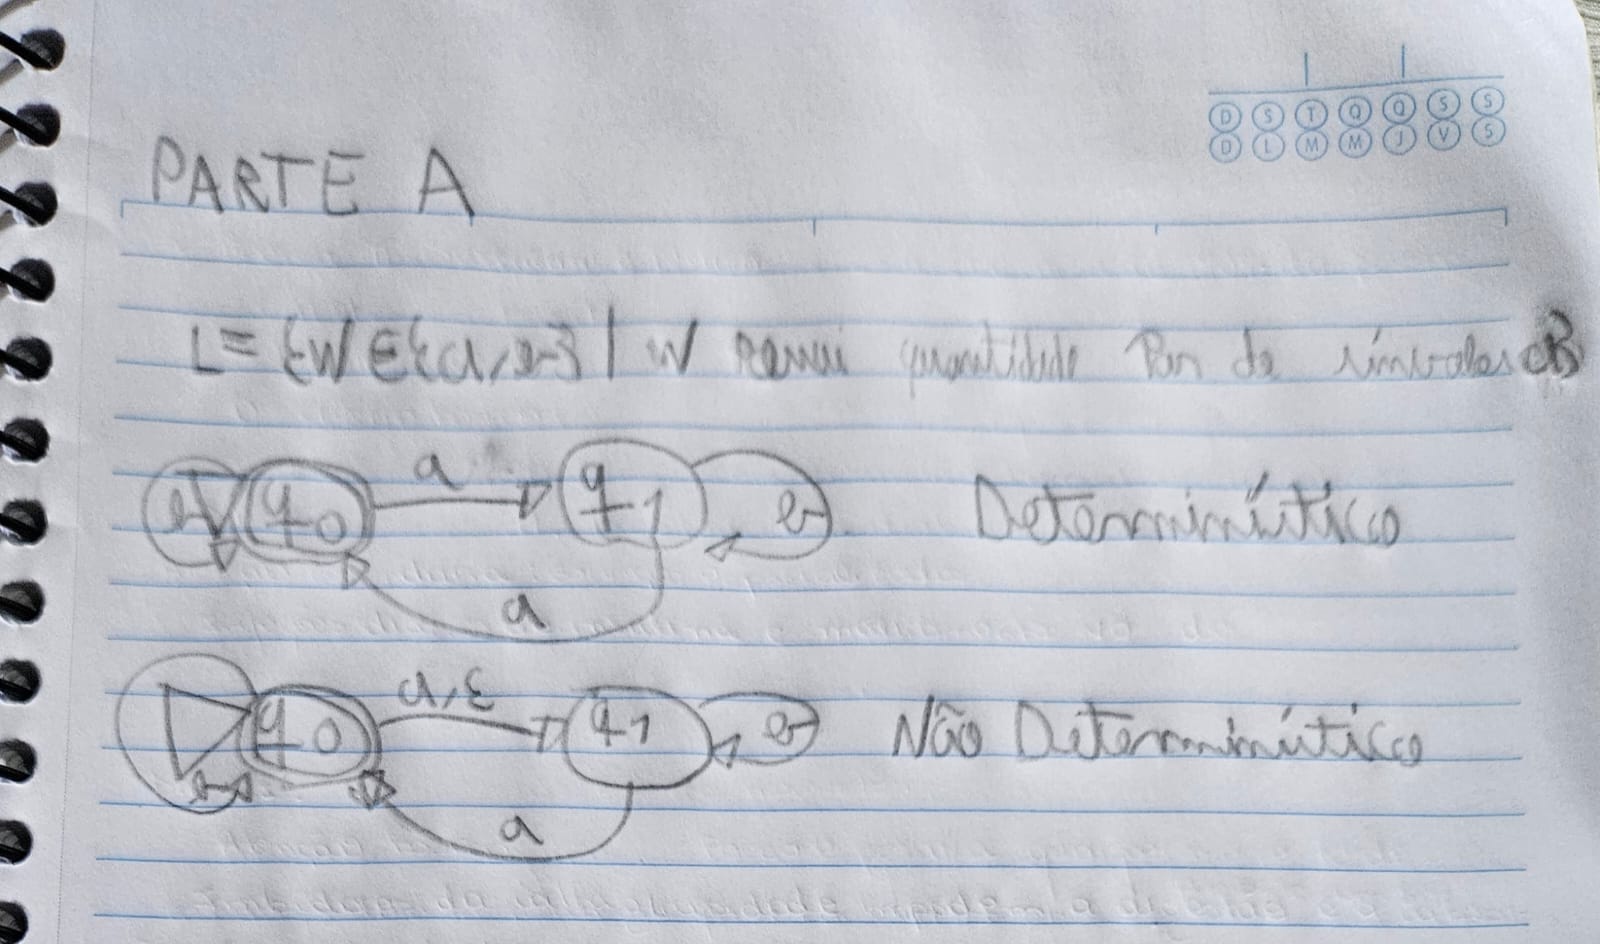 D S T Q Q S S
D L M M J V S
PARTE A
L = {W ∈ {a, b} | W possui quantidade Par de símbolos
a
b q0 q1 b Determinístico
a
a, ε
q0 q1 b Não Determinístico
b a